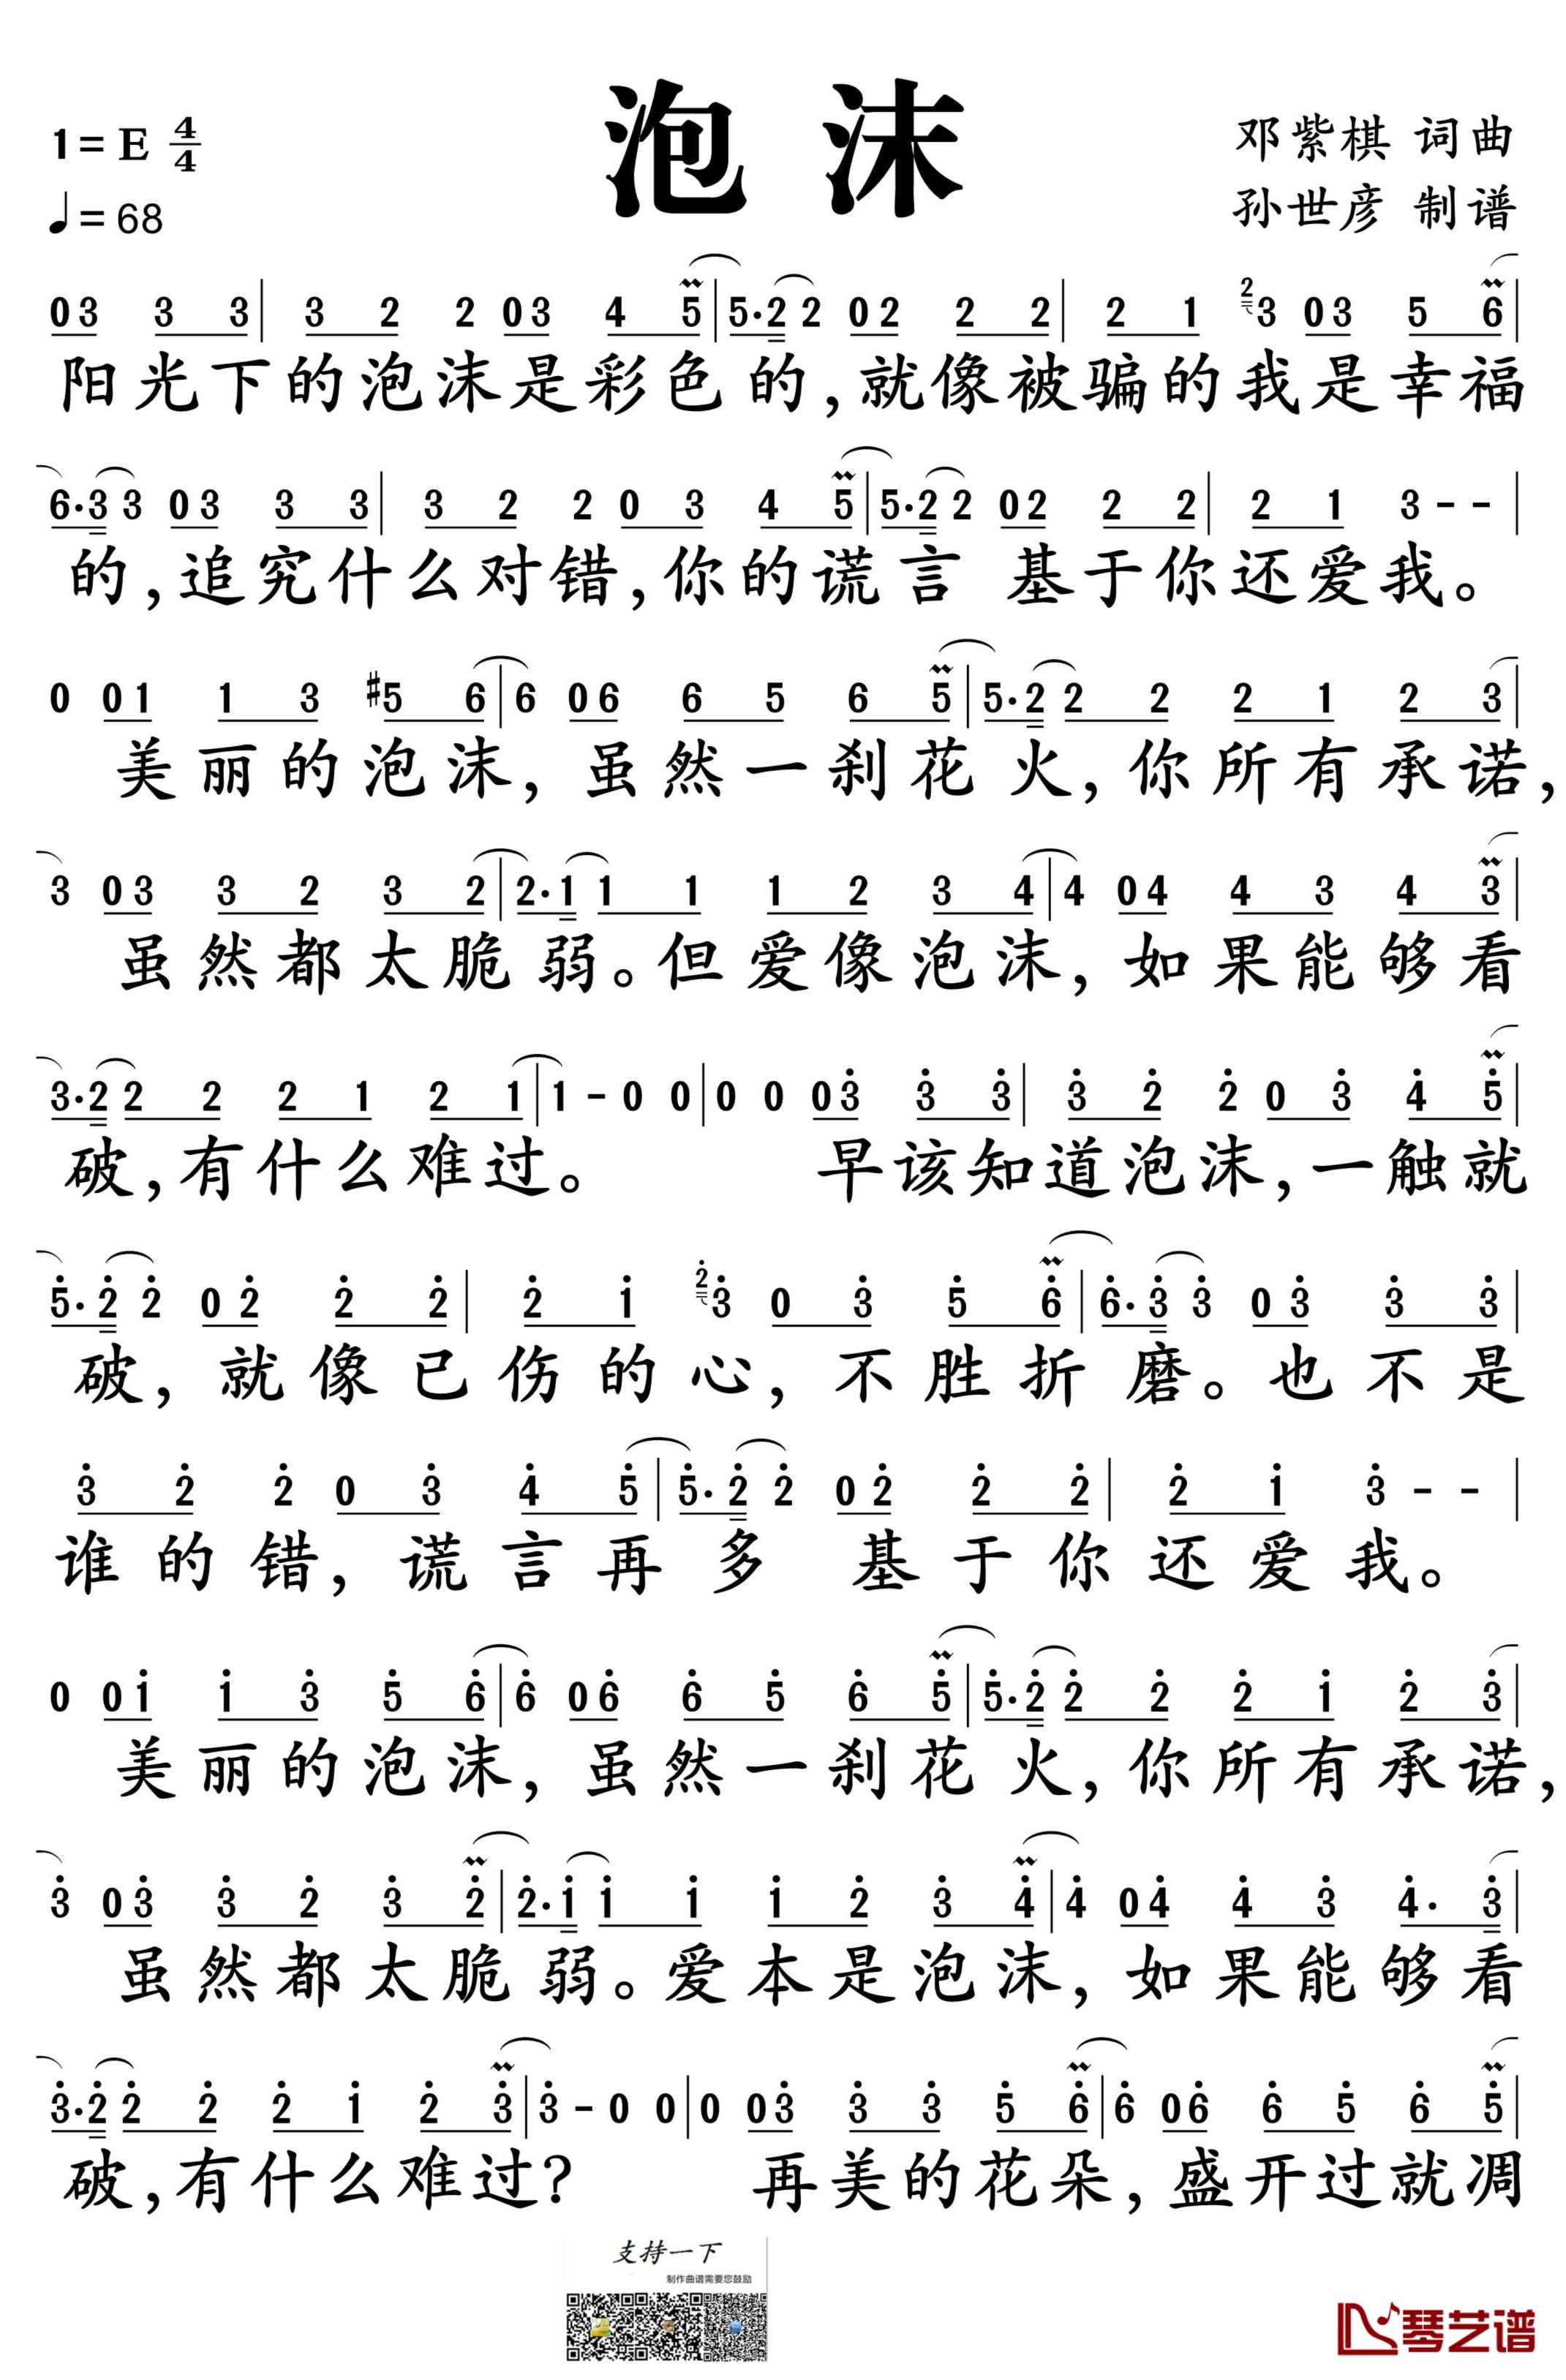 泡 沫
1= E 4/4
♩= 68
邓紫棋 词曲
孙世彦 制谱
03 3 3 | 3 2 2 03 4 5 | 5·2 2 02 2 2 | 2 1 23 03 5 6 |
阳光下的泡沫是彩色的,就像被骗的我是幸福
6·3 3 03 3 3 | 3 2 2 0 3 4 5 | 5·2 2 02 2 2 | 2 1 3 - - |
的,追究什么对错,你的谎言 基于你还爱我。
0 01 1 3 #5 6 | 6 06 6 5 6 5 | 5·2 2 2 2 1 2 3 |
美丽的泡沫,虽然一刹花火,你所有承诺,
3 03 3 2 3 2 | 2·1 1 1 1 2 3 4 | 4 04 4 3 4 3 |
虽然都太脆弱。但爱像泡沫,如果能够看
3·2 2 2 2 1 2 1 | 1 - 0 0 | 0 0 03̇ 3̇ 3̇ | 3̇ 2̇ 2̇ 0 3̇ 4̇ 5̇ |
破,有什么难过。 早该知道泡沫,一触就
5̇·2̇ 2̇ 0 2̇ 2̇ 2̇ | 2̇ 1̇ 2̇3̇ 0 3̇ 5̇ 6̇ | 6̇·3̇ 3̇ 0 3̇ 3̇ 3̇ |
破,就像已伤的心,不胜折磨。也不是
3̇ 2̇ 2̇ 0 3̇ 4̇ 5̇ | 5̇·2̇ 2̇ 02̇ 2̇ 2̇ | 2̇ 1̇ 3̇ - - |
谁的错,谎言再多 基于你还爱我。
0 01̇ 1̇ 3̇ 5̇ 6̇ | 6̇ 06̇ 6̇ 5̇ 6̇ 5̇ | 5̇·2̇ 2̇ 2̇ 2̇ 1̇ 2̇ 3̇ |
美丽的泡沫,虽然一刹花火,你所有承诺,
3̇ 03̇ 3̇ 2̇ 3̇ 2̇ | 2̇·1̇ 1̇ 1̇ 1̇ 2̇ 3̇ 4̇ | 4̇ 04̇ 4̇ 3̇ 4̇· 3̇ |
虽然都太脆弱。爱本是泡沫,如果能够看
3̇·2̇ 2̇ 2̇ 2̇ 1̇ 2̇ 3̇ | 3̇ - 0 0 | 0 03̇ 3̇ 3̇ 5̇ 6̇ | 6̇ 06̇ 6̇ 5̇ 6̇ 5̇ |
破,有什么难过? 再美的花朵,盛开过就凋
支持一下
制作曲谱需要您鼓励
琴艺谱